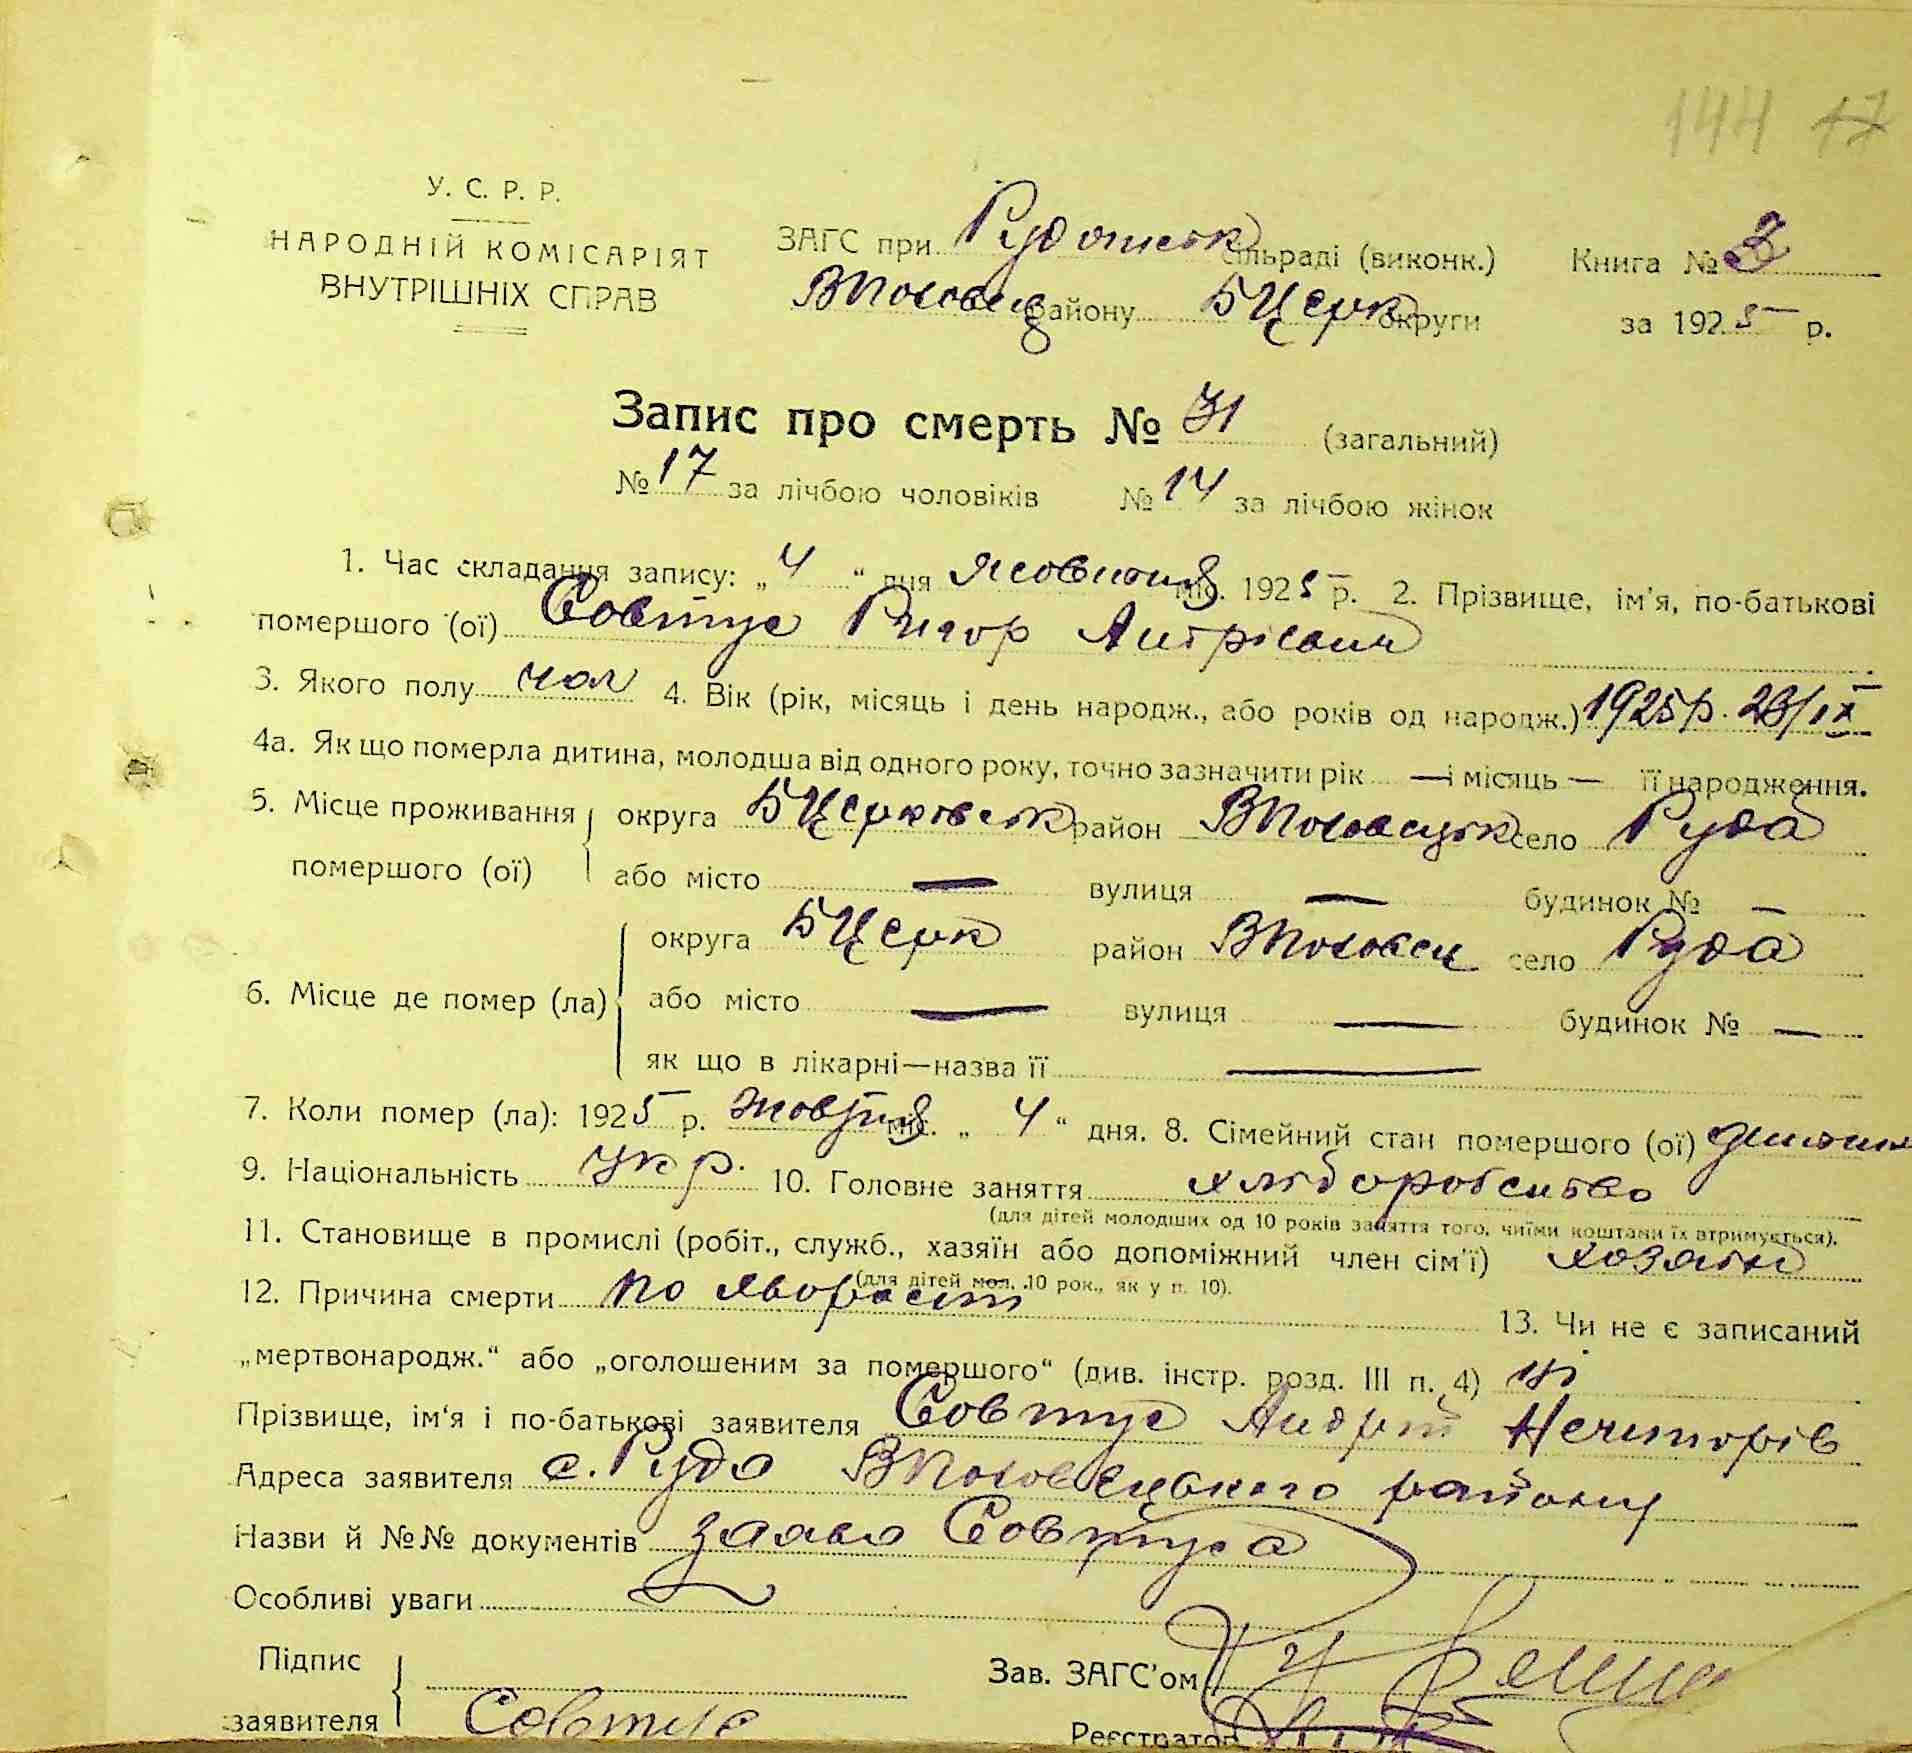 144 17
У. С. Р. Р.
НАРОДНІЙ КОМІСАРІЯТ
ВНУТРІШНІХ СПРАВ
ЗАГС при Рудонськ сільраді (виконк.) Книга № 3
району БЦерк округи за 1925 р.
Запис про смерть № 31 (загальний)
№ 17 за лічбою чоловіків № 14 за лічбою жінок
1. Час складання запису: „4“ дня жовтня міс. 1925 р. 2. Прізвище, ім'я, по-батькові
помершого (ої) Совтус Ригор Андрієвич
3. Якого полу чол 4. Вік (рік, місяць і день народж., або років од народж.) 1925 р. 23/IX
4а. Як що померла дитина, молодша від одного року, точно зазначити рік — і місяць — її народження.
5. Місце проживання помершого (ої) округа БЦерковськ район ВПоловецьк село Руда
або місто — вулиця — будинок № —
6. Місце де помер (ла) округа БЦерк район ВПоловец село Руда
або місто — вулиця — будинок № —
як що в лікарні—назва її —
7. Коли помер (ла): 1925 р. жовтня міс. „4“ дня. 8. Сімейний стан помершого (ої) дитина
9. Національність укр. 10. Головне заняття хліборобство
(для дітей молодших од 10 років заняття того, чиїми коштами їх втримується).
11. Становище в промислі (робіт., служб., хазяїн або допоміжний член сім'ї) хозяїн
(для дітей мол. 10 рок., як у п. 10).
12. Причина смерти по хворості 13. Чи не є записаний
„мертвонародж.“ або „оголошеним за помершого“ (див. інстр. розд. III п. 4) ні
Прізвище, ім'я і по-батькові заявителя Совтус Андрій Нечипорів
Адреса заявителя с. Руда ВПоловецького району
Назви й №№ документів заява Совтуса
Особливі уваги
Підпис заявителя Совтус
Зав. ЗАГС'ом
Реєстратор